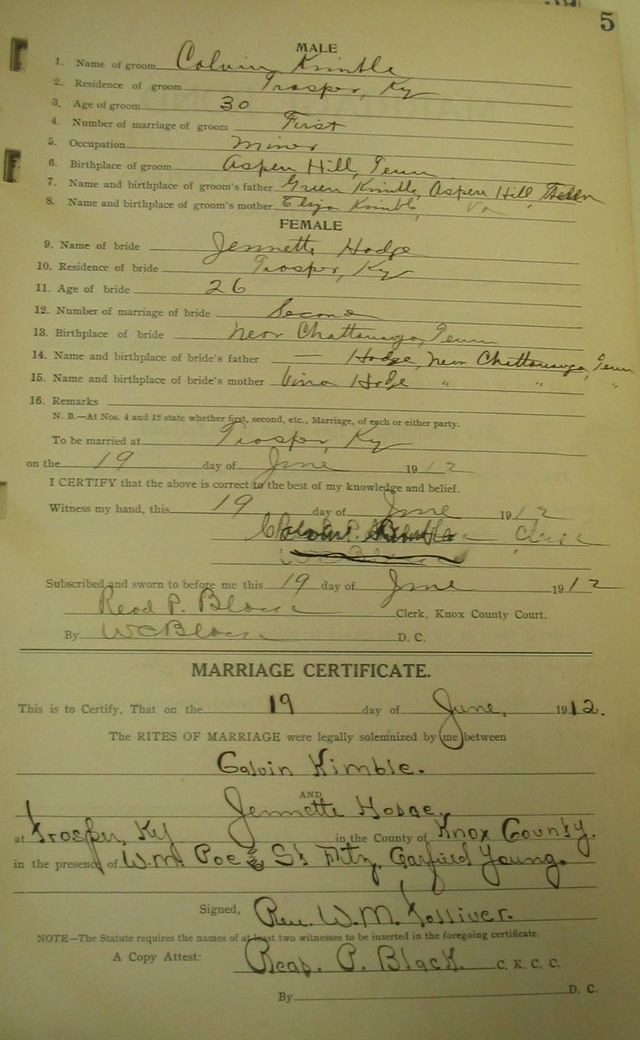 5
MALE
1. Name of groom Calvin Kimble
2. Residence of groom Trosper, Ky
3. Age of groom 30
4. Number of marriage of groom First
5. Occupation Miner
6. Birthplace of groom Aspen Hill, Tenn
7. Name and birthplace of groom's father Green Kimble, Aspen Hill, Tenn
8. Name and birthplace of groom's mother Eliza Kimble, Va
FEMALE
9. Name of bride Jennette Hodge
10. Residence of bride Trosper, Ky
11. Age of bride 26
12. Number of marriage of bride Second
13. Birthplace of bride Near Chattanuga, Tenn
14. Name and birthplace of bride's father — Hodge, Near Chattanuga, Tenn
15. Name and birthplace of bride's mother Vina Hodge " " "
16. Remarks
N. B.—At Nos. 4 and 12 state whether first, second, etc., Marriage, of each or either party.
To be married at Trosper, Ky
on the 19 day of June 1912
I CERTIFY that the above is correct to the best of my knowledge and belief.
Witness my hand, this 19 day of June 1912
Subscribed and sworn to before me this 19 day of June 1912
Read P. Black Clerk, Knox County Court.
By W C Black D. C.
MARRIAGE CERTIFICATE.
This is to Certify, That on the 19 day of June, 1912.
The RITES OF MARRIAGE were legally solemnized by me between
Calvin Kimble.
AND
Jennette Hodge.
at Trosper, Ky in the County of Knox County.
in the presence of W.M. Poe & S. Fitz, Garfield Young.
Signed, Rev. W.M. Tolliver.
NOTE—The Statute requires the names of at least two witnesses to be inserted in the foregoing certificate.
A Copy Attest: Read. P. Black. C. K. C. C.
By D. C.